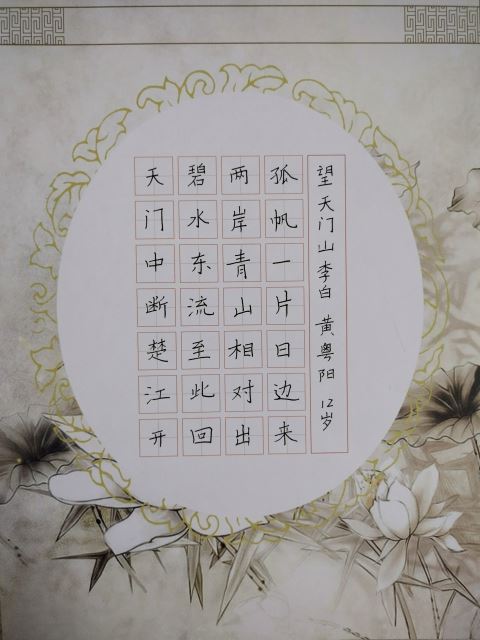 天门中断楚江开
碧水东流至此回
两岸青山相对出
孤帆一片日边来
望天门山 李白 黄粤阳 12岁